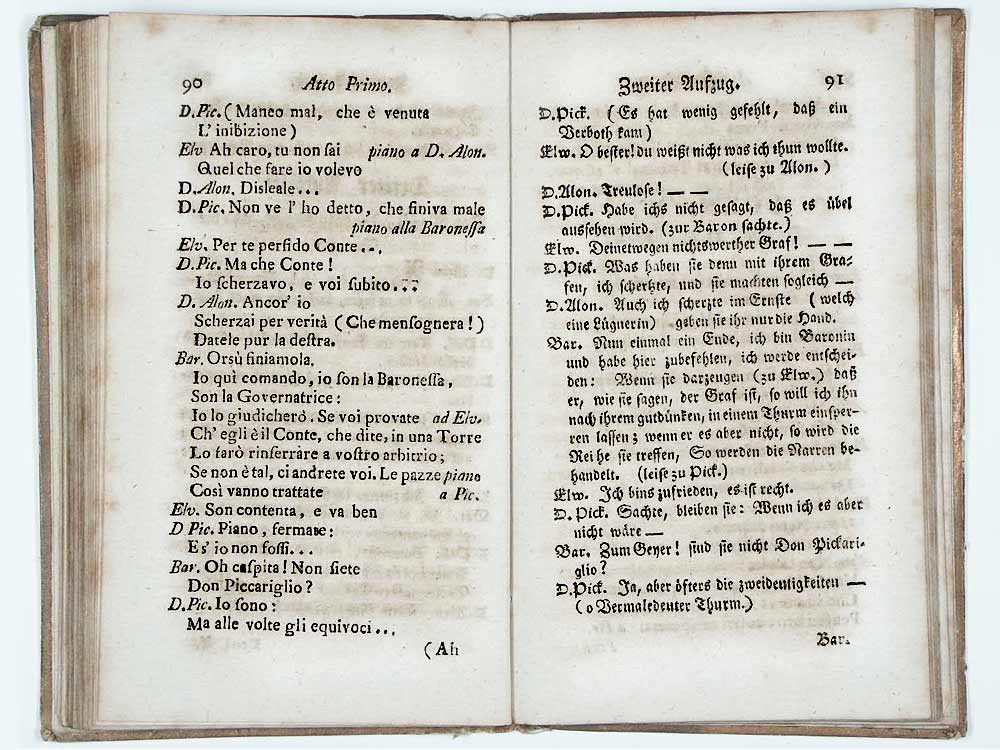 90 Atto Primo.
D. Pic. ( Maneo mal, che è venuta
L' inibizione )
Elv Ah caro, tu non sai piano a D. Alon.
Quel che fare io volevo
D. Alon. Disleale...
D. Pic. Non ve l' ho detto, che finiva male
piano alla Baronessa
Elv. Per te perfido Conte...
D. Pic. Ma che Conte !
Io scherzavo, e voi subito...
D. Alon. Ancor' io
Scherzai per verità ( Che mensognera ! )
Datele pur la destra.
Bar. Orsù finiamola.
Io quì comando, io son la Baronessa,
Son la Governatrice :
Io lo giudicherò. Se voi provate ad Elv.
Ch' egli è il Conte, che dite, in una Torre
Lo farò rinserrare a vostro arbitrio ;
Se non è tal, ci andrete voi. Le pazze piano
Così vanno trattate a Pic.
Elv. Son contenta, e va ben
D Pic. Piano, fermate :
E s' io non fossi...
Bar. Oh caspita ! Non siete
Don Piccariglio ?
D. Pic. Io sono :
Ma alle volte gli equivoci...
( Ah
Zweiter Aufzug. 91
D. Pick. ( Es hat wenig gefehlt, daß ein
Verboth kam )
Elw. O bester! du weißt nicht was ich thun wollte.
(leise zu Alon. )
D. Alon. Treulose ! — —
D. Pick. Habe ichs nicht gesagt, daß es übel
aussehen wird. (zur Baron sachte.)
Elw. Deinetwegen nichtswerther Graf ! — —
D. Pick. Was haben sie denn mit ihrem Gra-
fen, ich scherzte, und sie machten sogleich —
D. Alon. Auch ich scherzte im Ernste ( welch
eine Lügnerin) geben sie ihr nur die Hand.
Bar. Nun einmal ein Ende, ich bin Baronin
und habe hier zubefehlen, ich werde entschei-
den : Wenn sie darzeugen (zu Elw.) daß
er, wie sie sagen, der Graf ist, so will ich ihn
nach ihrem gutdünken, in einem Thurm einsper-
ren lassen ; wenn er es aber nicht, so wird die
Rei he sie treffen, So werden die Narren be-
handelt. (leise zu Pick.)
Elw. Ich bins zufrieden, es ist recht.
D. Pick. Sachte, bleiben sie : Wenn ich es aber
nicht wäre —
Bar. Zum Geyer ! sind sie nicht Don Pickari-
glio ?
D. Pick. Ja, aber öfters die zweideutigkeiten —
( o Vermaledeuter Thurm.)
Bar.